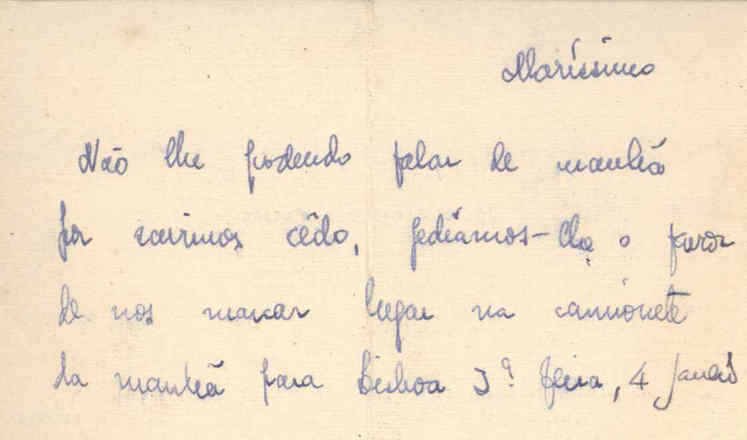 Maríssimo
Não lhe podendo falar de manhã
por sairmos cêdo, pediamos-lhe o favor
de nos marcar lugar na camionete
da manhã para Lisboa 3ª feira, 4 Janeiro